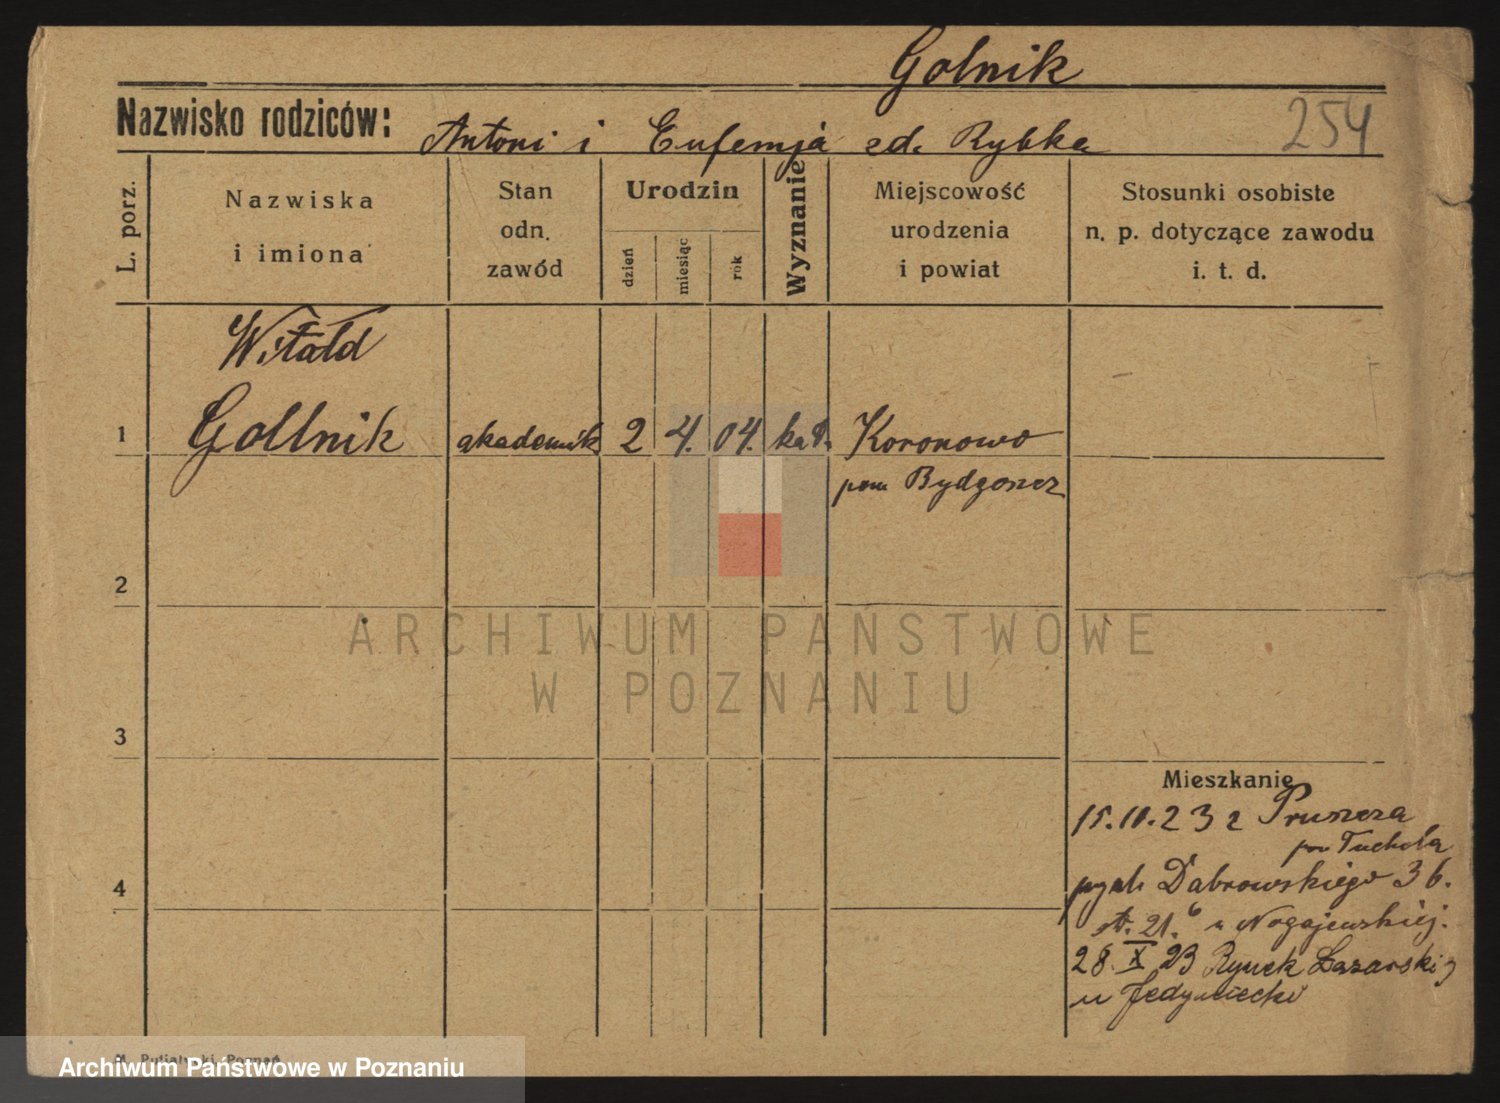 Golnik
Nazwisko rodziców: Antoni i Eufemja zd. Rybka 254
L. porz.
Nazwiska
i imiona
Stan
odn.
zawód
Urodzin
dzień
miesiąc
rok
Wyznanie
Miejscowość
urodzenia
i powiat
Stosunki osobiste
n. p. dotyczące zawodu
i. t. d.
Witold
1 Gollnik akademik 2 4. 04. kat. Koronowo
pow Bydgoszcz
2
ARCHIWUM PAŃSTWOWE
W POZNANIU
3
Mieszkanie
15.10.23 z Pruszcza
pow Tuchola
4
Dabrowskiego 36.
21. u Nogajewskiej.
28. X 23 Rynek Lazarski 7
u
M. Putiatycki, Poznań
Archiwum Państwowe w Poznaniu